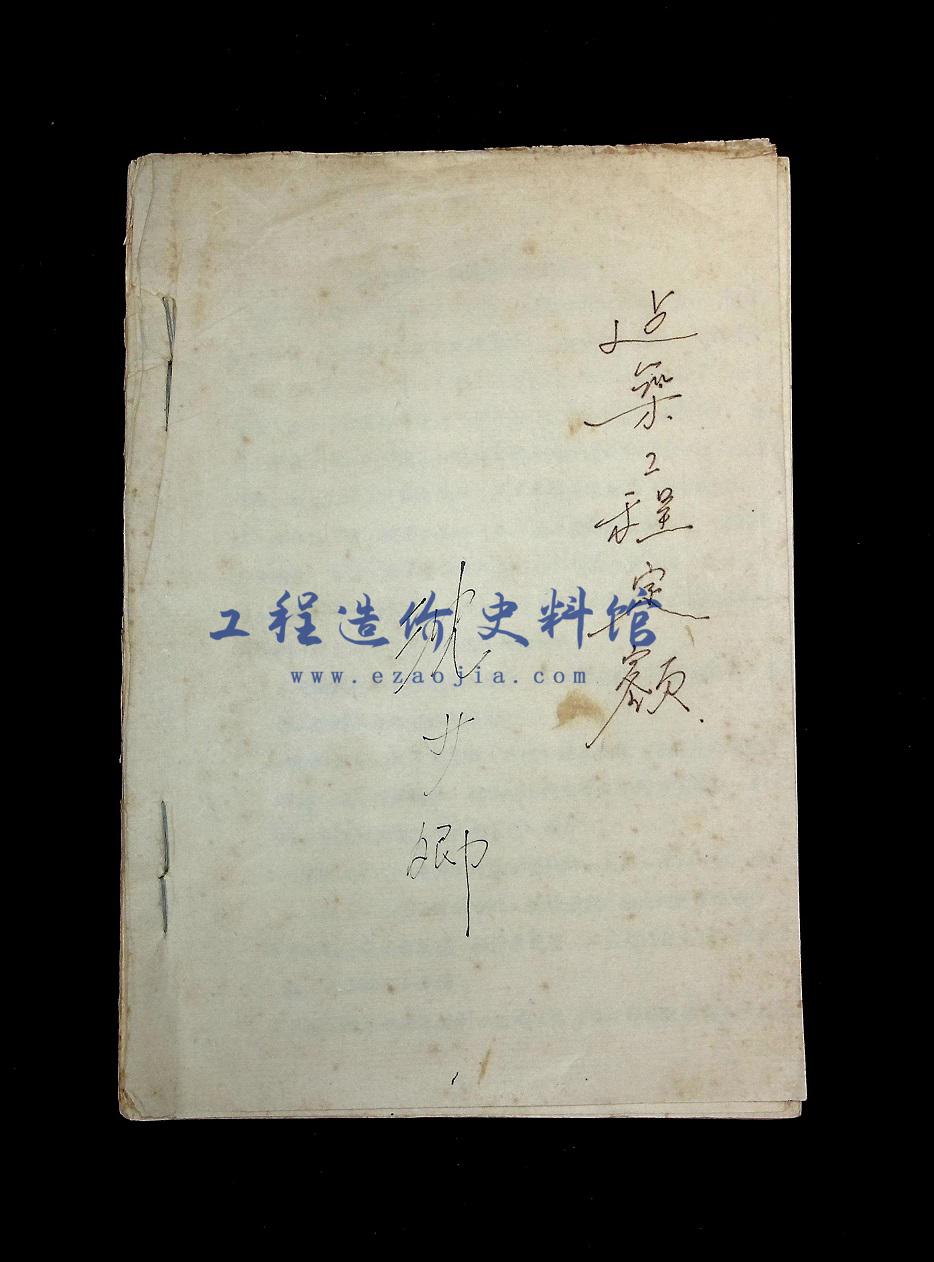 迠築工程定額
卿
工程造价史料馆
www.ezaojia.com